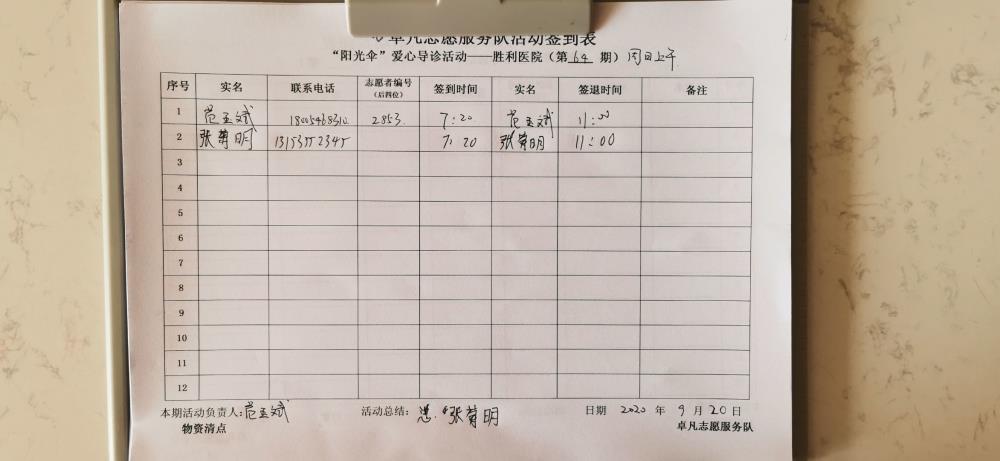 卓凡志愿服务队活动签到表
“阳光伞”爱心导诊活动——胜利医院（第 64 期）周日上午
序号 实名 联系电话 志愿者编号（后四位） 签到时间 实名 签退时间 备注
1 范孟斌 18005468310 2853 7:20 范孟斌 11:00
2 张菊明 13153552345 7:20 张菊明 11:00
3
4
5
6
7
8
9
10
11
12
本期活动负责人:范孟斌 活动总结: 张菊明 日期 2020 年 9 月 20 日
物资清点 卓凡志愿服务队